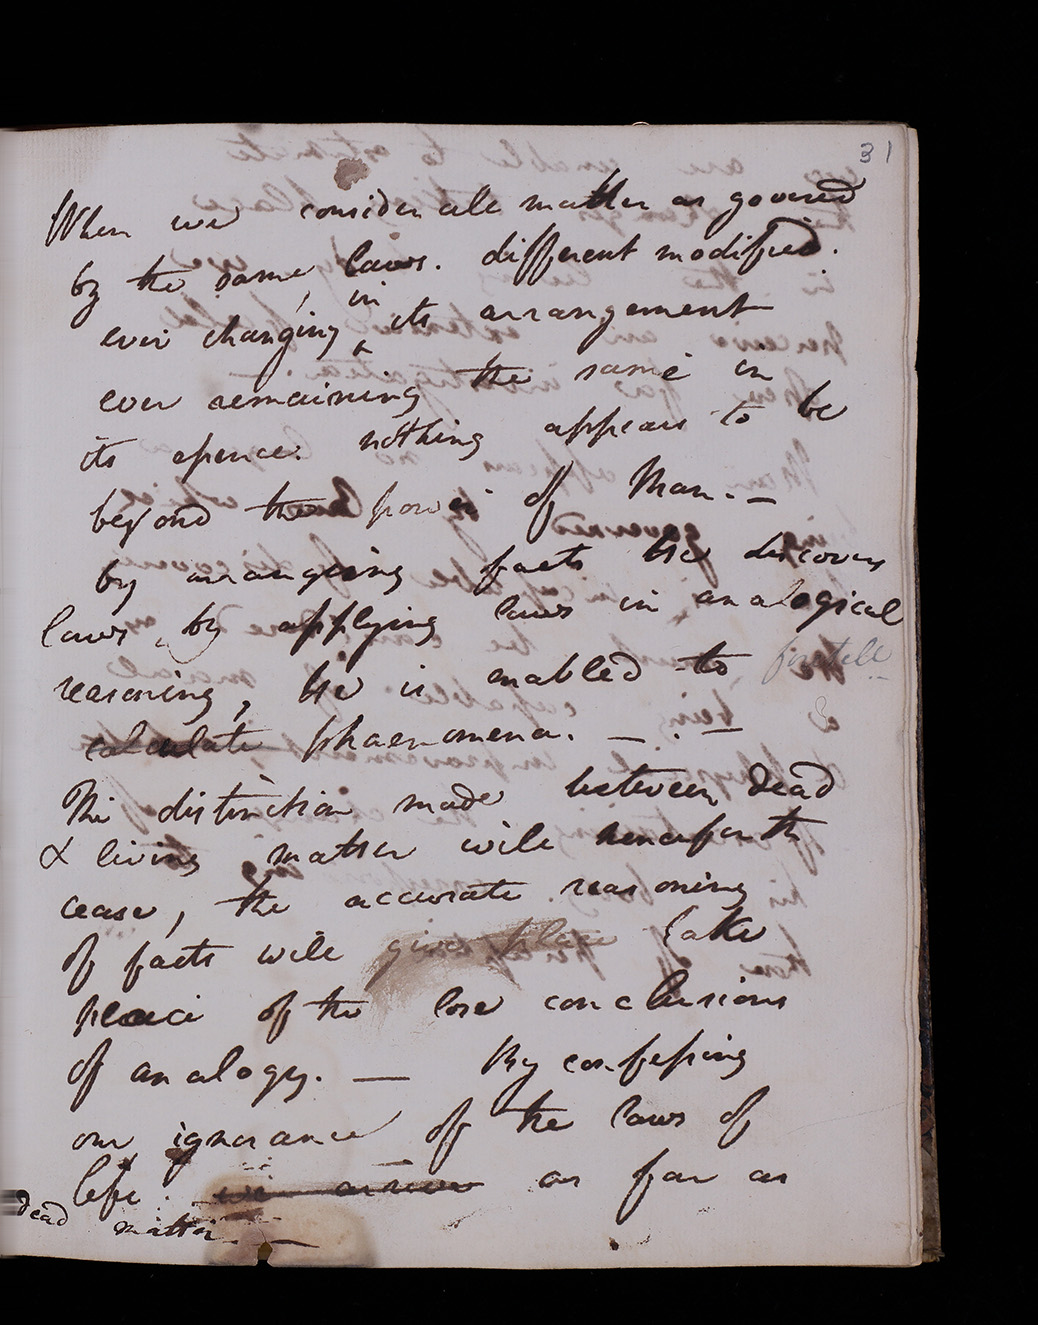 31
When we consider all matter as govered
by the same laws. different modified.
ever changing, in its arrangement
ever remaining the same in
its essence. nothing appears to be
beyond the power of Man. —
by arranging facts He discovers
laws, by applying laws in analogical
reasoning, He is enabled to foretell
calculate phaenomena. — . —
The distinction made between dead
& living matter will henceforth
cease, the accurate reasoning
of facts will give place take
place of the lose conclusions
of analogy. — By confessing
our ignorance of the laws of
life. we as far as
dead matter